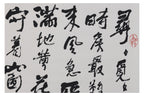 尋覓
時候最
來風急
滿地黃花
守着窗